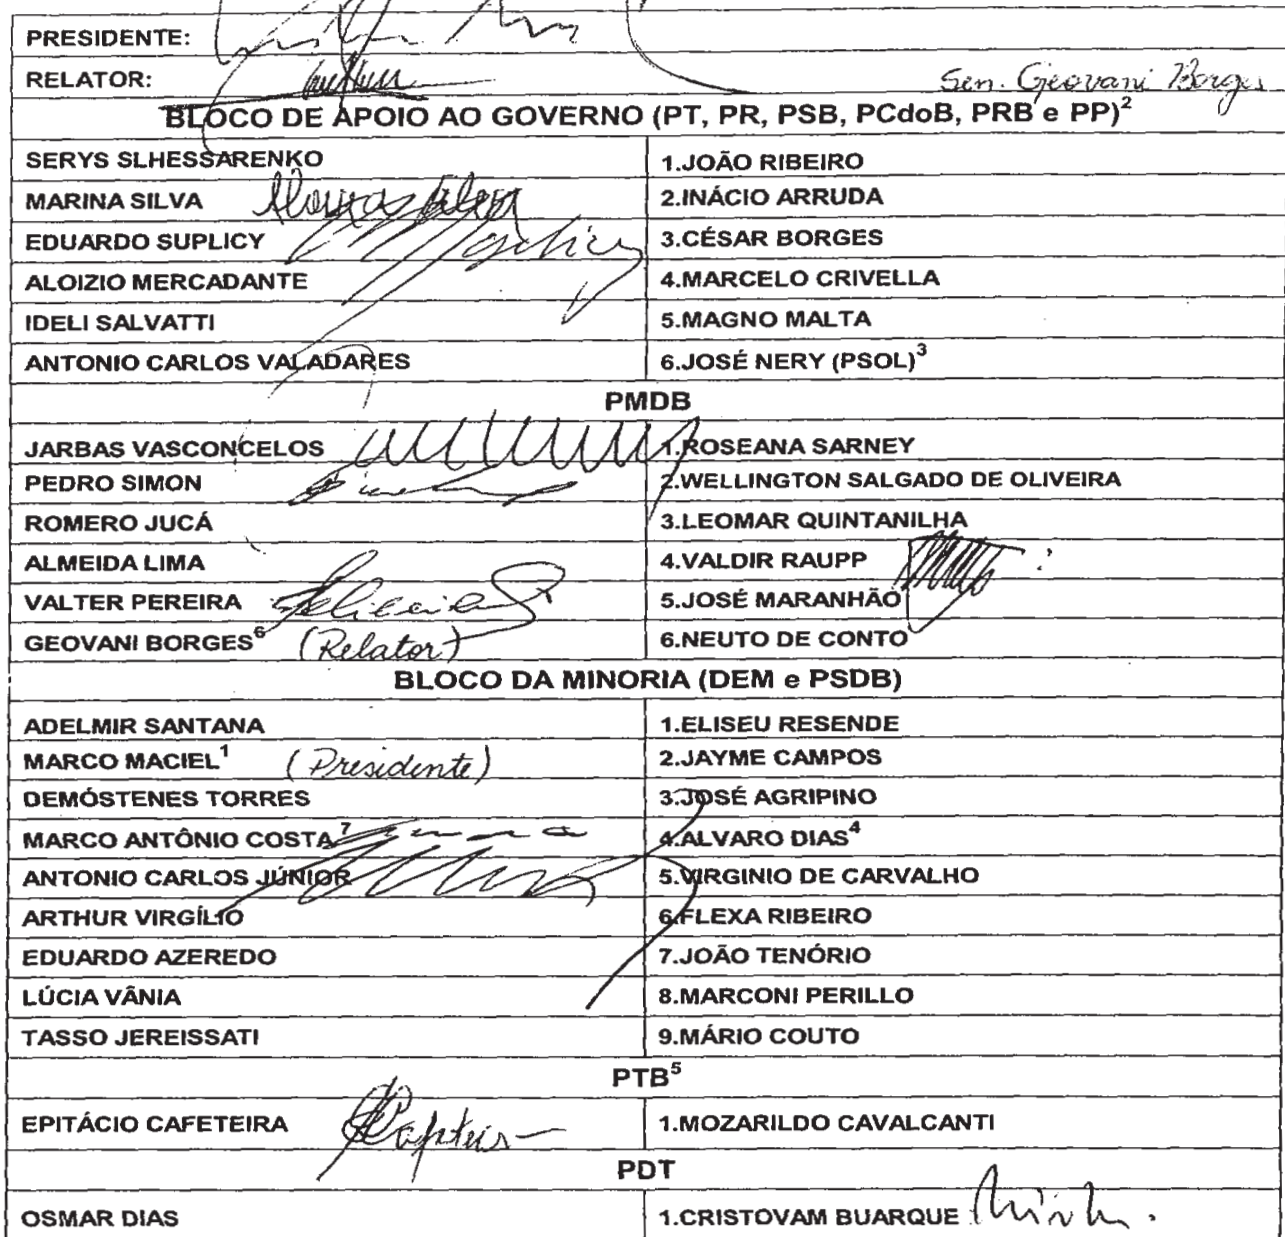 PRESIDENTE:
RELATOR: Sen. Geovani Borges
BLOCO DE APOIO AO GOVERNO (PT, PR, PSB, PCdoB, PRB e PP)²
SERYS SLHESSARENKO 1.JOÃO RIBEIRO
MARINA SILVA 2.INÁCIO ARRUDA
EDUARDO SUPLICY 3.CÉSAR BORGES
ALOIZIO MERCADANTE 4.MARCELO CRIVELLA
IDELI SALVATTI 5.MAGNO MALTA
ANTONIO CARLOS VALADARES 6.JOSÉ NERY (PSOL)³
PMDB
JARBAS VASCONCELOS 1.ROSEANA SARNEY
PEDRO SIMON 2.WELLINGTON SALGADO DE OLIVEIRA
ROMERO JUCÁ 3.LEOMAR QUINTANILHA
ALMEIDA LIMA 4.VALDIR RAUPP
VALTER PEREIRA 5.JOSÉ MARANHÃO
GEOVANI BORGES⁶ (Relator) 6.NEUTO DE CONTO
BLOCO DA MINORIA (DEM e PSDB)
ADELMIR SANTANA 1.ELISEU RESENDE
MARCO MACIEL¹ (Presidente) 2.JAYME CAMPOS
DEMÓSTENES TORRES 3.JOSÉ AGRIPINO
MARCO ANTÔNIO COSTA⁷ 4.ALVARO DIAS⁴
ANTONIO CARLOS JÚNIOR 5.VIRGINIO DE CARVALHO
ARTHUR VIRGÍLIO 6.FLEXA RIBEIRO
EDUARDO AZEREDO 7.JOÃO TENÓRIO
LÚCIA VÂNIA 8.MARCONI PERILLO
TASSO JEREISSATI 9.MÁRIO COUTO
PTB⁵
EPITÁCIO CAFETEIRA 1.MOZARILDO CAVALCANTI
PDT
OSMAR DIAS 1.CRISTOVAM BUARQUE